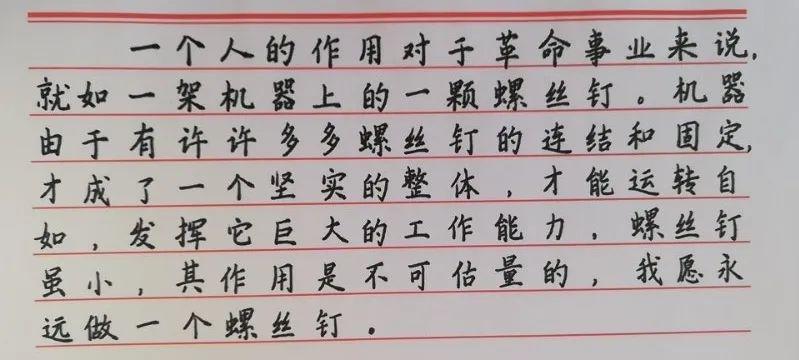 一个人的作用对于革命事业来说,
就如一架机器上的一颗螺丝钉。机器
由于有许许多多螺丝钉的连结和固定,
才成了一个坚实的整体,才能运转自
如,发挥它巨大的工作能力,螺丝钉
虽小,其作用是不可估量的,我愿永
远做一个螺丝钉。